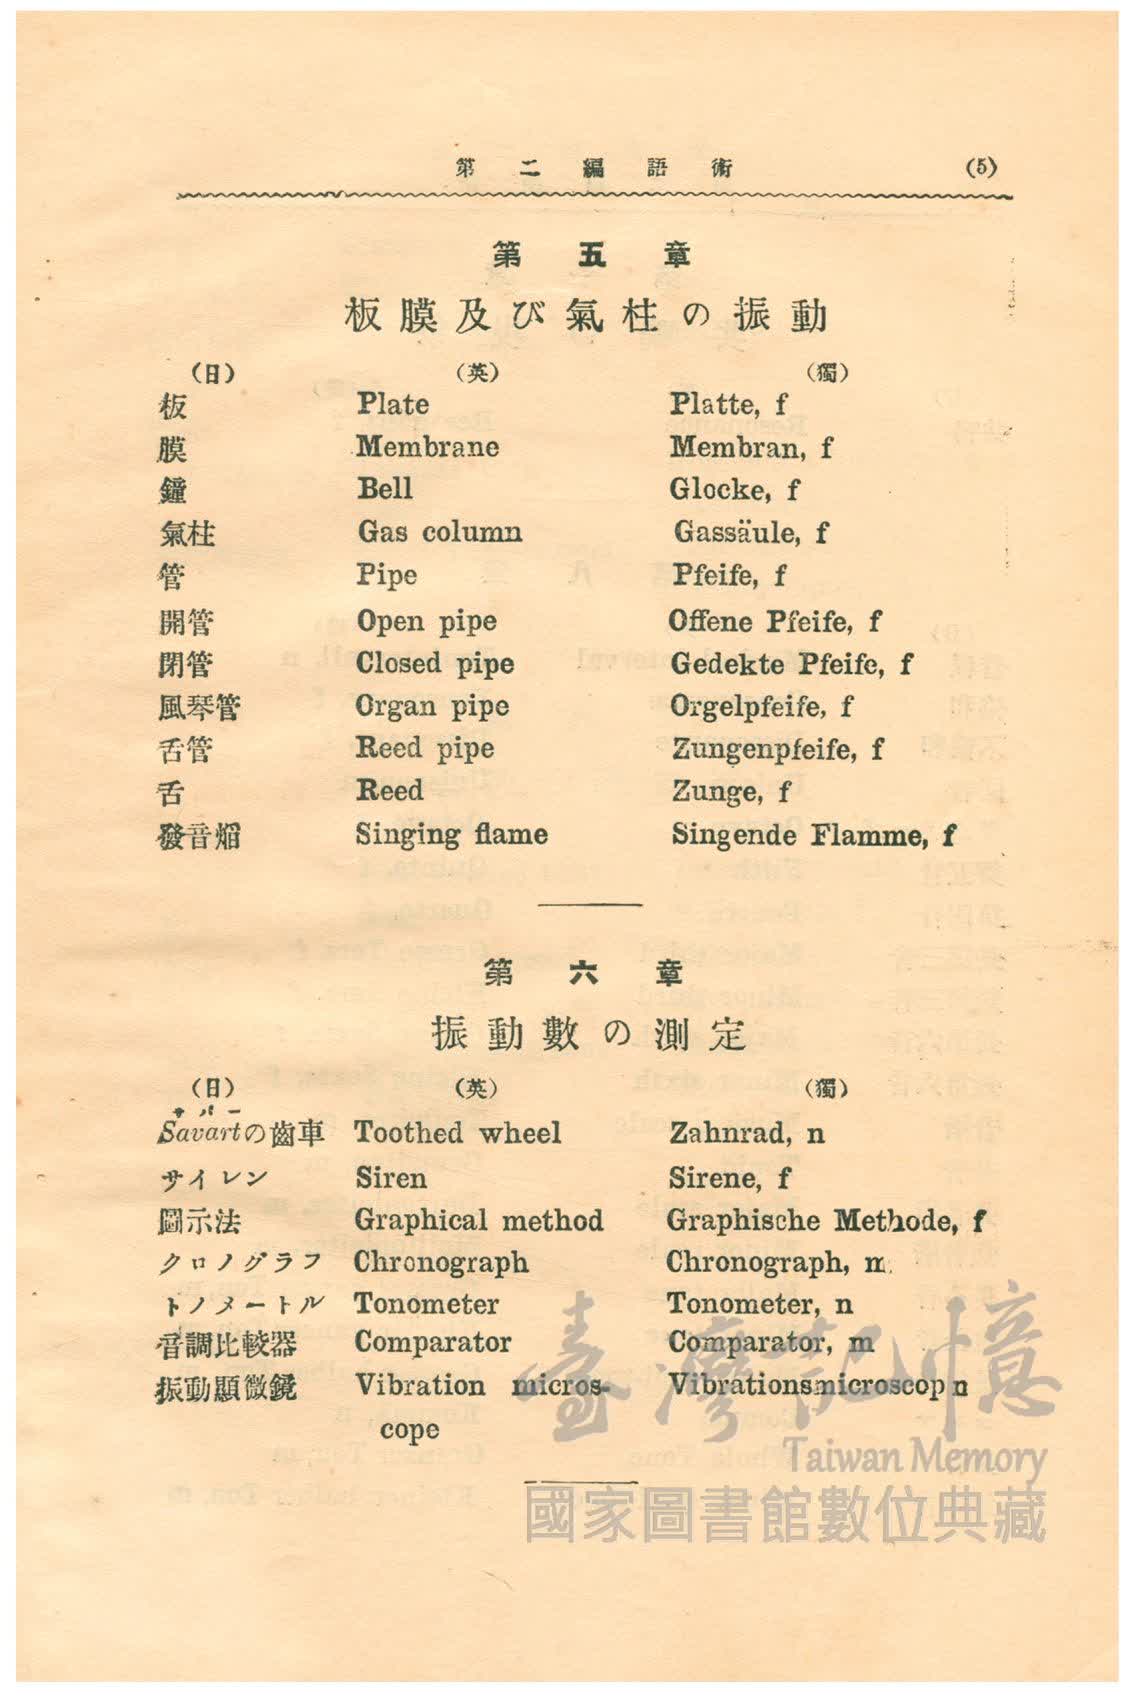 第二編語術 (5)
第五章
板膜及び氣柱の振動
(日) (英) (獨)
板 Plate Platte, f
膜 Membrane Membran, f
鐘 Bell Glocke, f
氣柱 Gas column Gassäule, f
管 Pipe Pfeife, f
開管 Open pipe Offene Pfeife, f
閉管 Closed pipe Gedekte Pfeife, f
風琴管 Organ pipe Orgelpfeife, f
舌管 Reed pipe Zungenpfeife, f
舌 Reed Zunge, f
發音焰 Singing flame Singende Flamme, f
第六章
振動數の測定
(日) (英) (獨)
サバー
Savartの齒車 Toothed wheel Zahnrad, n
サイレン Siren Sirene, f
圖示法 Graphical method Graphische Methode, f
クロノグラフ Chronograph Chronograph, m
トノメートル Tonometer Tonometer, n
音調比較器 Comparator Comparator, m
振動顯微鏡 Vibration micros- Vibrationsmicroscop n
cope
臺灣記憶
Taiwan Memory
國家圖書館數位典藏